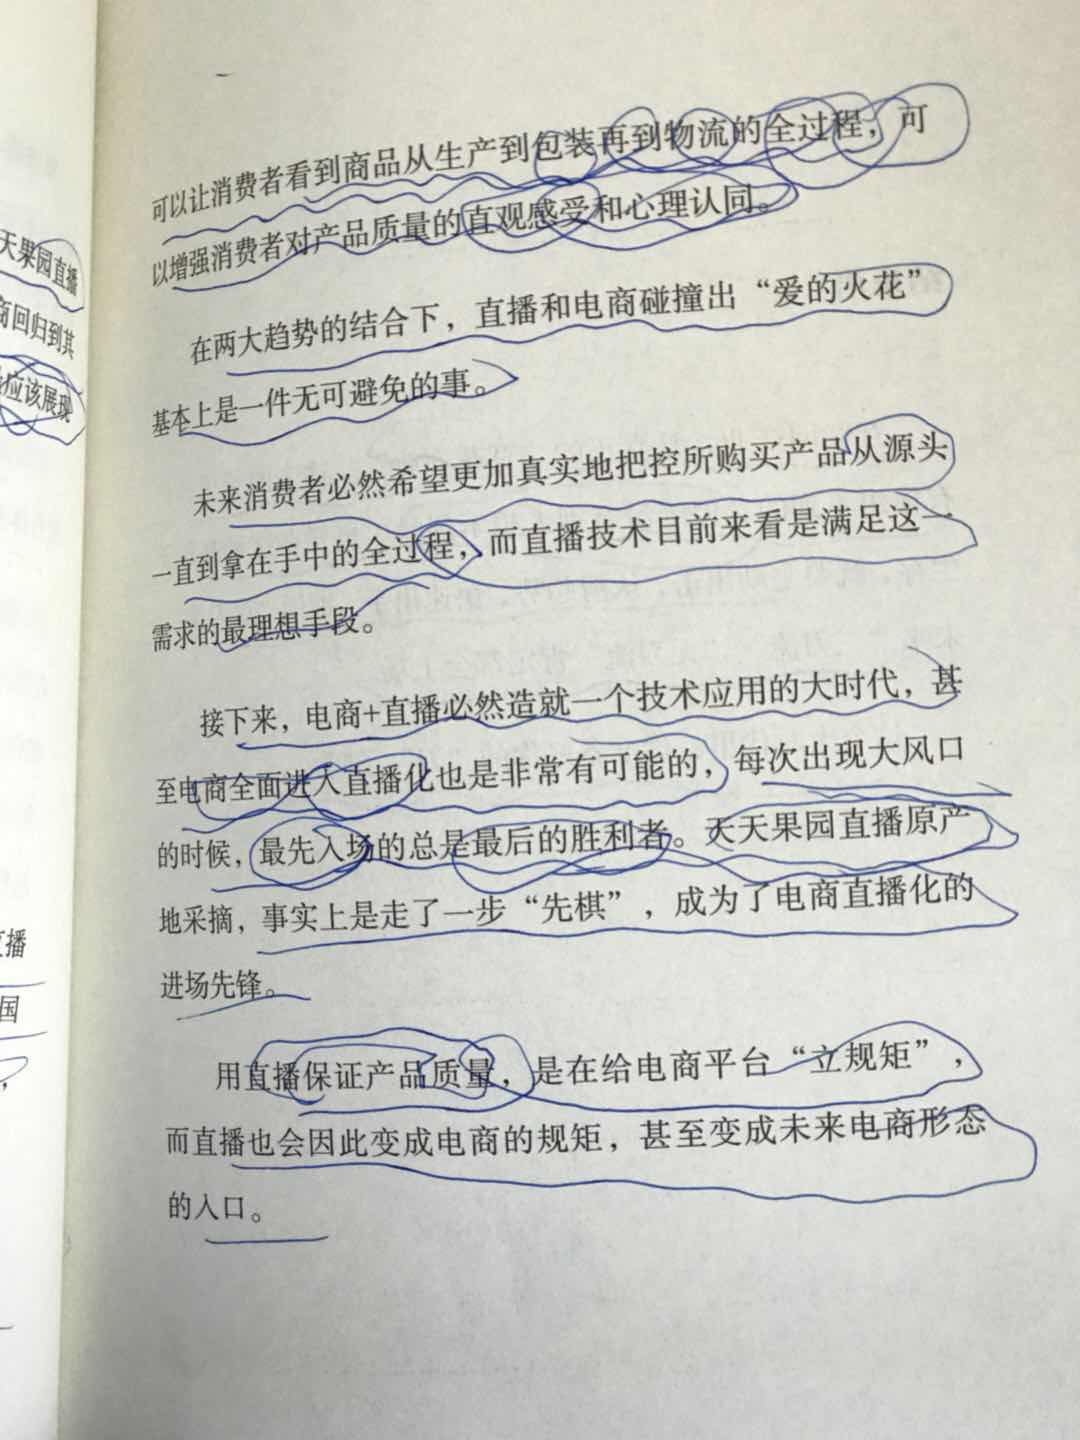 天果园直播
商回归到其
应该展现
播
国
可以让消费者看到商品从生产到包装再到物流的全过程，可
以增强消费者对产品质量的直观感受和心理认同。
在两大趋势的结合下，直播和电商碰撞出“爱的火花”
基本上是一件无可避免的事。
未来消费者必然希望更加真实地把控所购买产品从源头
一直到拿在手中的全过程，而直播技术目前来看是满足这一
需求的最理想手段。
接下来，电商+直播必然造就一个技术应用的大时代，甚
至电商全面进入直播化也是非常有可能的，每次出现大风口
的时候，最先入场的总是最后的胜利者。天天果园直播原产
地采摘，事实上是走了一步“先棋”，成为了电商直播化的
进场先锋。
用直播保证产品质量，是在给电商平台“立规矩”，
而直播也会因此变成电商的规矩，甚至变成未来电商形态
的入口。